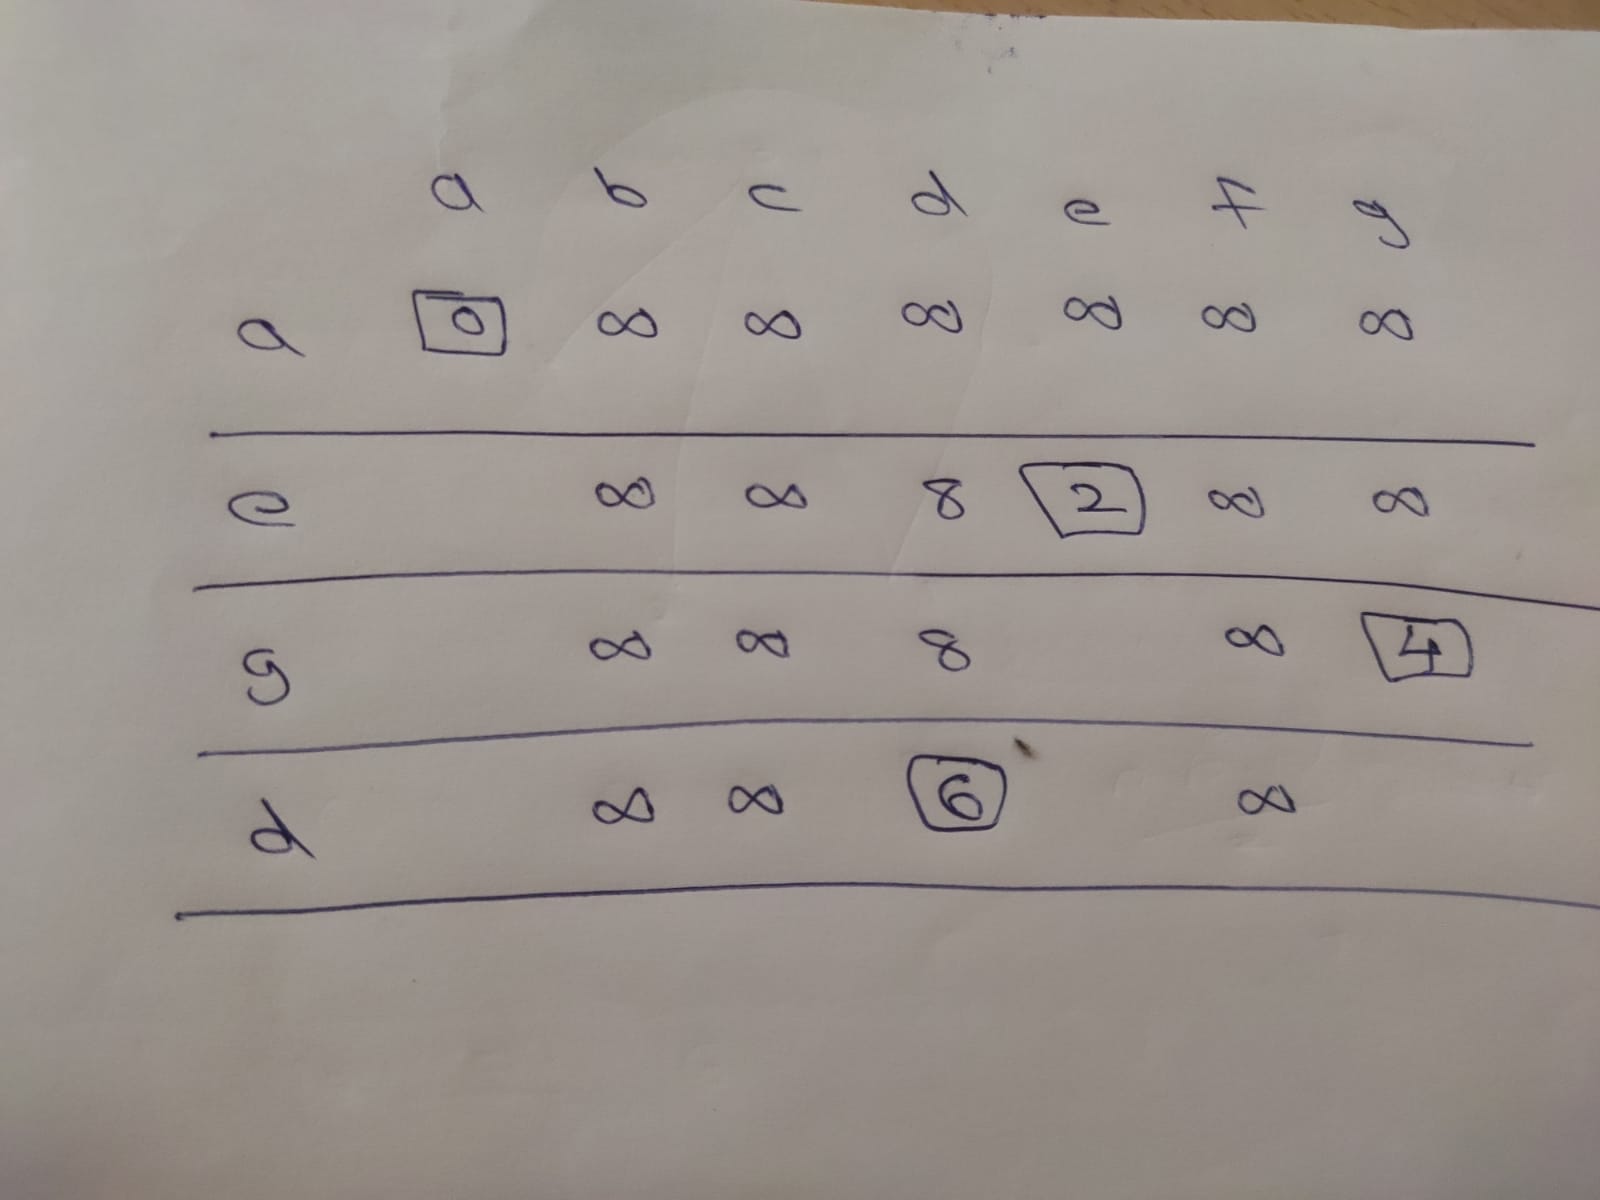 a b c d e f g
a 0 ∞ ∞ ∞ ∞ ∞ ∞
e ∞ ∞ 8 2 ∞ ∞
g ∞ ∞ 8 ∞ 4
d ∞ ∞ 6 ∞